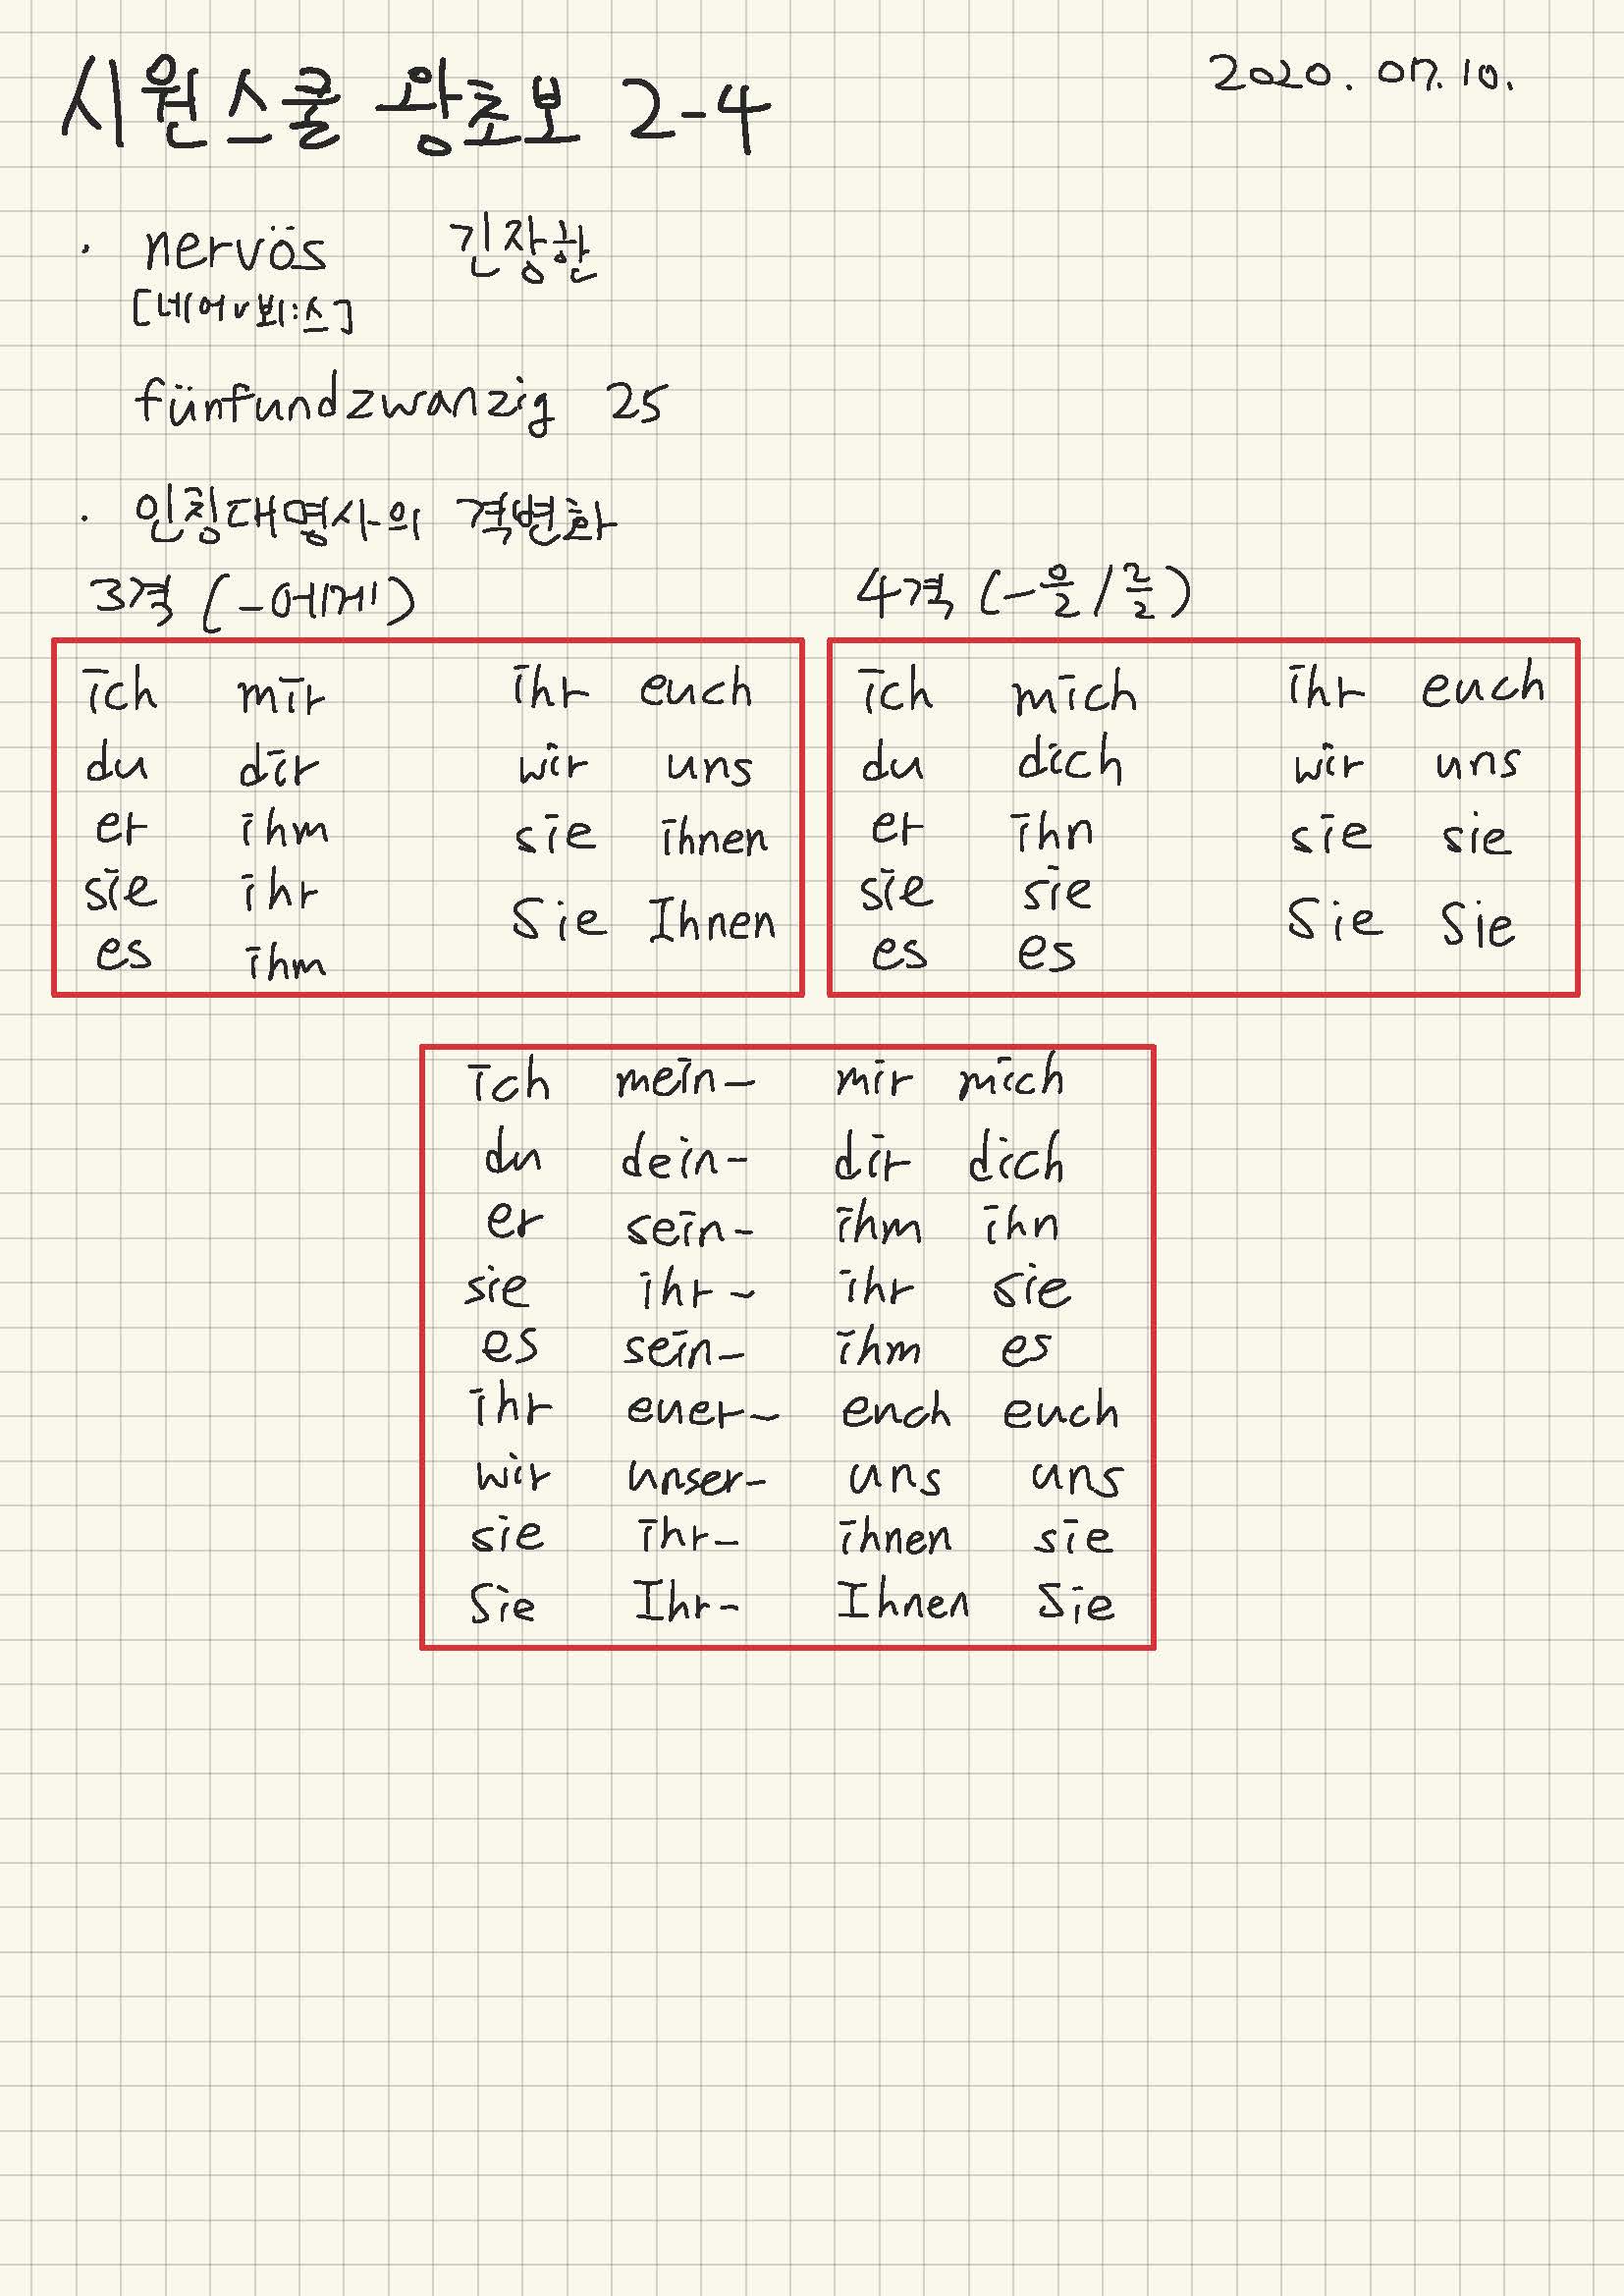 시원스쿨 왕초보 2-4
2020. 07. 10.
· nervös 긴장한
[네어v뵈:스]
fünfundzwanzig 25
· 인칭대명사의 격변화
3격 (-에게)
ich mir ihr euch
du dir wir uns
er ihm sie ihnen
sie ihr Sie Ihnen
es ihm
4격 (-을/를)
ich mich ihr euch
du dich wir uns
er ihn sie sie
sie sie Sie Sie
es es
ich mein- mir mich
du dein- dir dich
er sein- ihm ihn
sie ihr- ihr sie
es sein- ihm es
ihr euer- euch euch
wir unser- uns uns
sie ihr- ihnen sie
Sie Ihr- Ihnen Sie